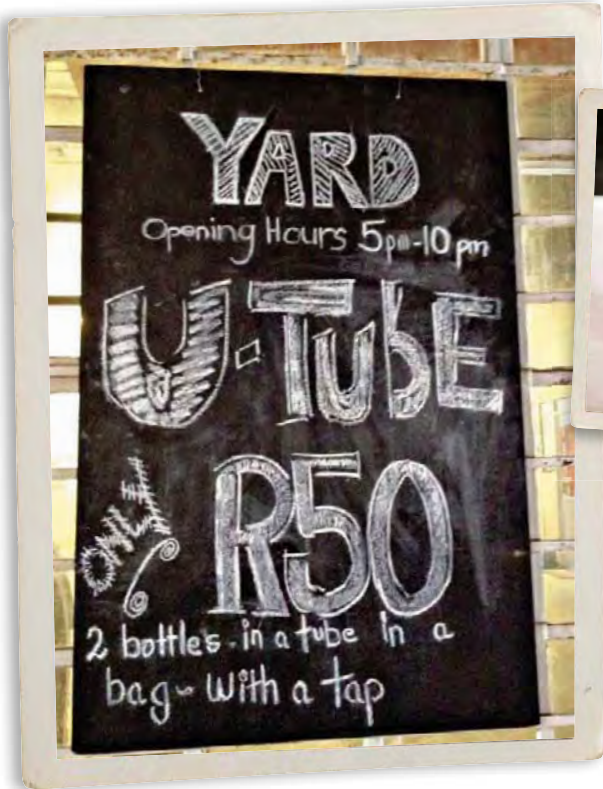 YARD
Opening Hours 5pm-10pm
U-TubE
ONLY R50
2 bottles in a tube in a
bag - with a tap